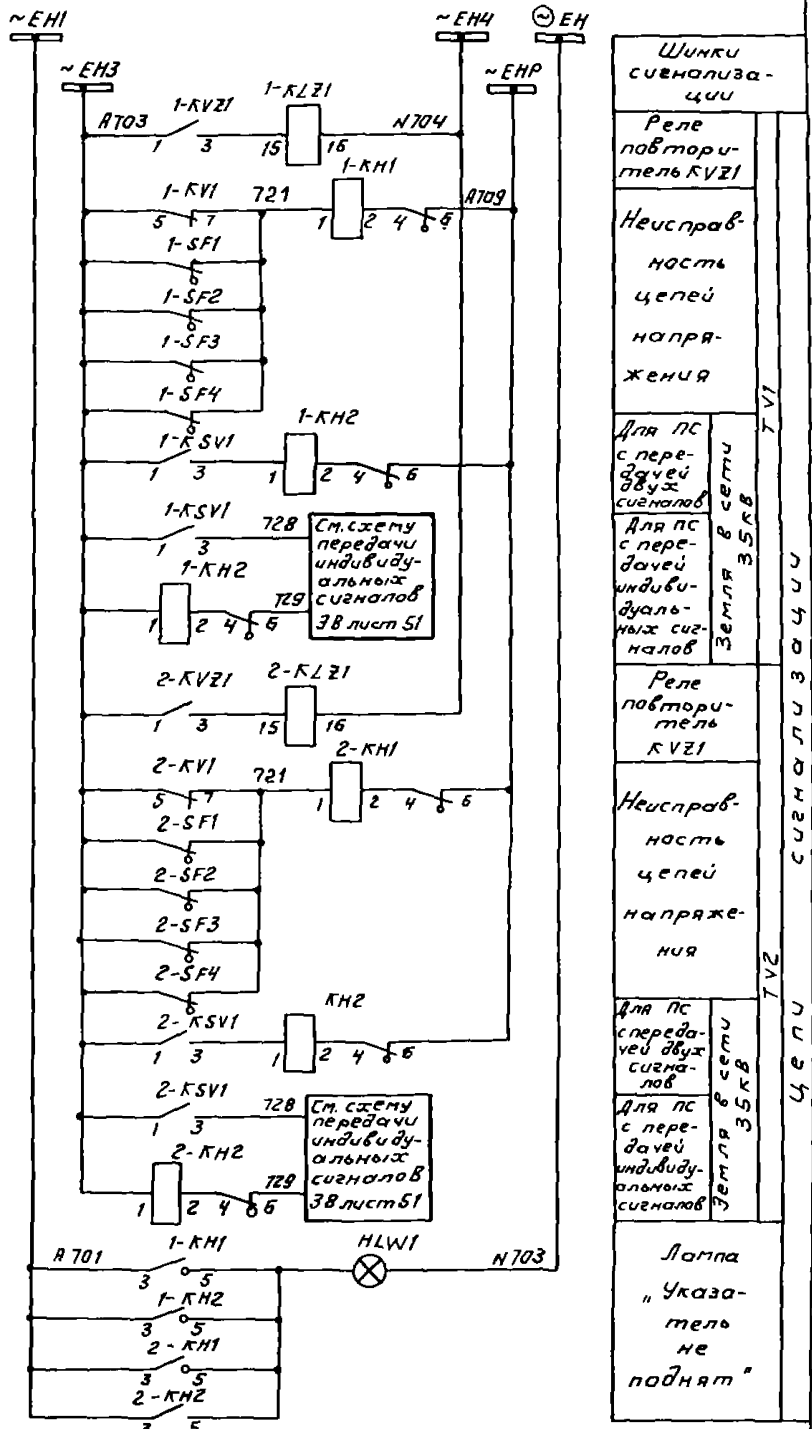 ~EH1
~EH4
~EH
~EH3
~EHP
A703 1-KVZ1 1-KLZ1 N704
1 3 15 16
1-KH1
1-KV1 721 A709
5 7 1 2 4 6
1-SF1
1-SF2
1-SF3
1-SF4
1-KSV1 1-KH2
1 3 1 2 4 6
1-KSV1 728
1 3
1-KH2 729
1 2 4 6
См. схему
передачи
индивиду-
альных
сигналов
ЭВ лист 51
2-KVZ1 2-KLZ1
1 3 15 16
2-KV1 721 2-KH1
5 7 1 2 4 6
2-SF1
2-SF2
2-SF3
2-SF4
2-KSV1 KH2
1 3 1 2 4 6
2-KSV1 728
1 3
2-KH2 729
1 2 4 6
См. схему
передачи
индивиду-
альных
сигналов
ЭВ лист 51
A701 1-KH1 HLW1 N703
3 5
1-KH2
3 5
2-KH1
3 5
2-KH2
3 5
Шинки
сигнализа-
ции
Реле
повтори-
тель KVZ1
Неисправ-
ность
цепей
напря-
жения
Для ПС
с пере-
дачей
двух
сигналов
Для ПС
с пере-
дачей
индиви-
дуаль-
ных сиг-
налов
Земля в сети
35кВ
TV1
Реле
повтори-
тель
KVZ1
Неисправ-
ность
цепей
напряже-
ния
Для ПС
с переда-
чей двух
сигна-
лов
Для ПС
с пере-
дачей
индивиду-
альных
сигналов
Земля в сети
35кВ
TV2
Лампа
„Указа-
тель
не
поднят"
Цепи сигнализации